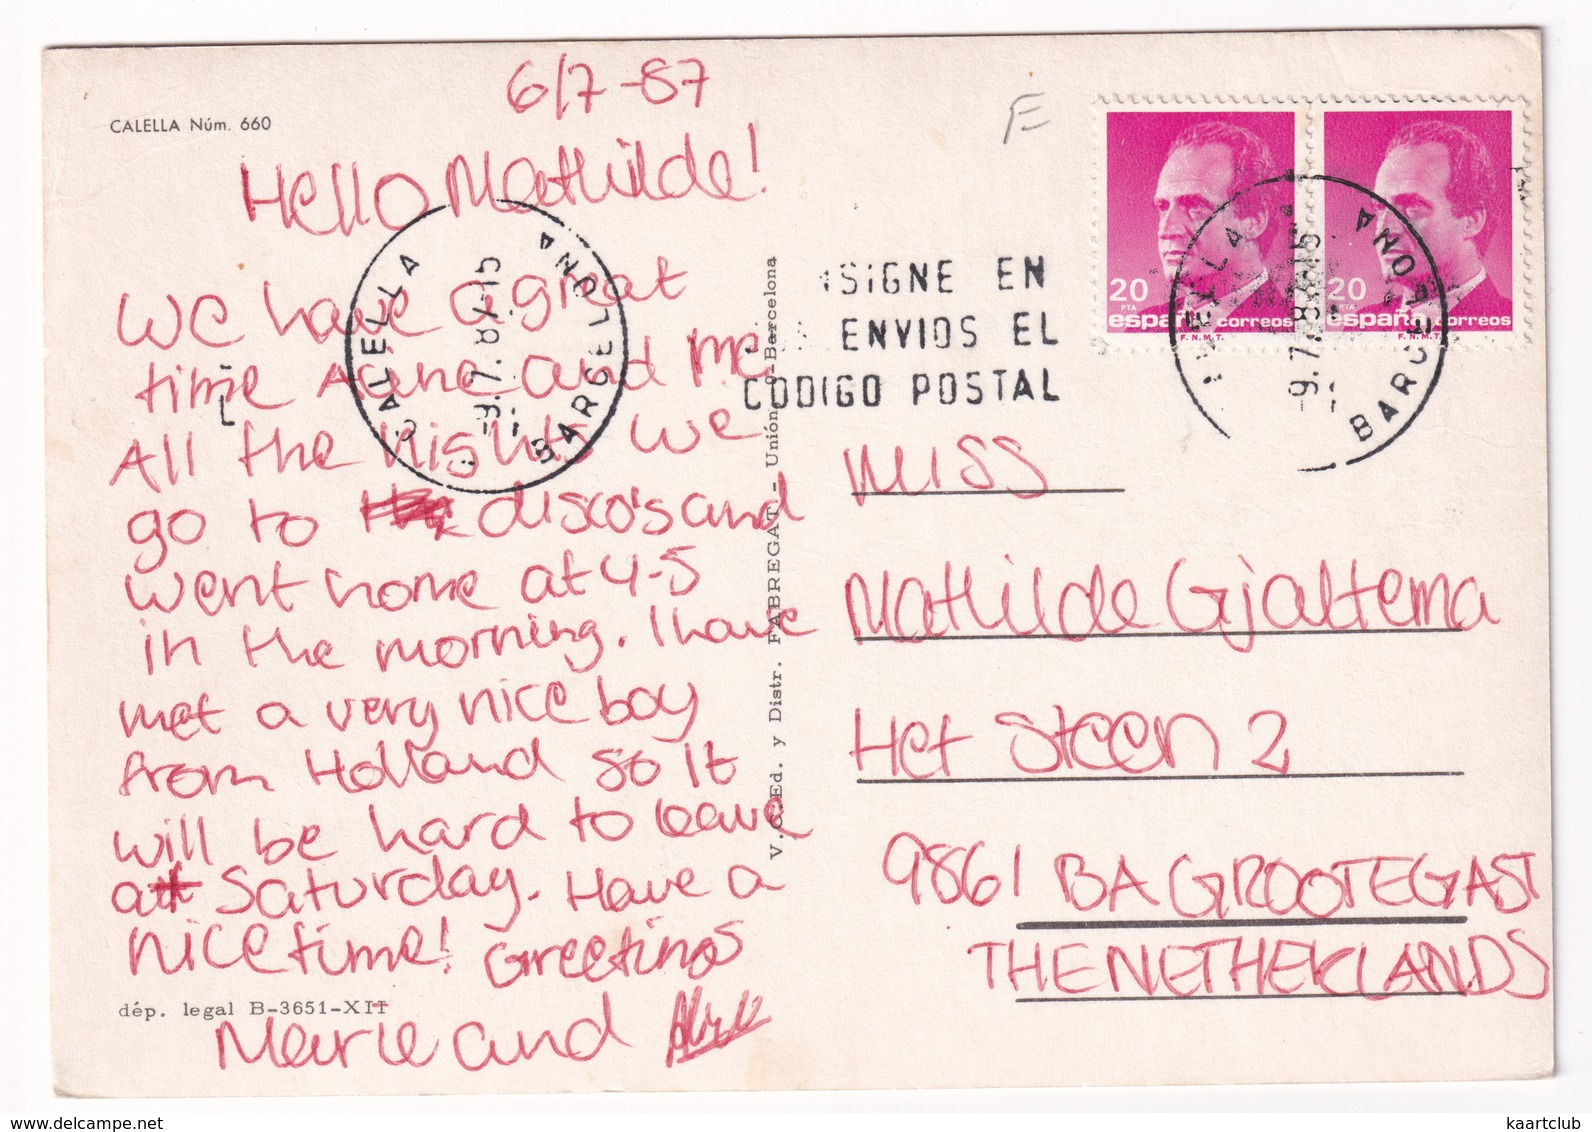 6/7-87
CALELLA Núm. 660
Hello Mathilde!
We have a great
time Aline and me
All the nights we
go to disco's and
went home at 4-5
in the morning. I have
met a very nice boy
from Holland so it
will be hard to leave
at Saturday. Have a
nice time! Greetings
dép. legal B-3651-XII
Marie and
V. Ed. y Distr. FABREGAT - Unión -Barcelona
CALELLA
BARCELONA
SIGNE EN
ENVIOS EL
CODIGO POSTAL
20 PTA
españa correos
F.N.M.T.
20 PTA
españa correos
F.N.M.T.
BARCELONA
E
Miss
Mathilde Gjaltema
Het Steen 2
9861 BA GROOTEGAST
THE NETHERLANDS
kaartclub